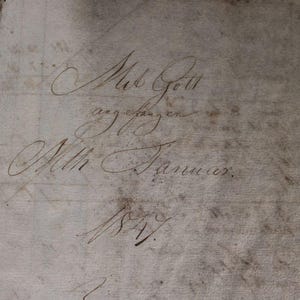 Mit Gott
angefangen
Januar.
1847.